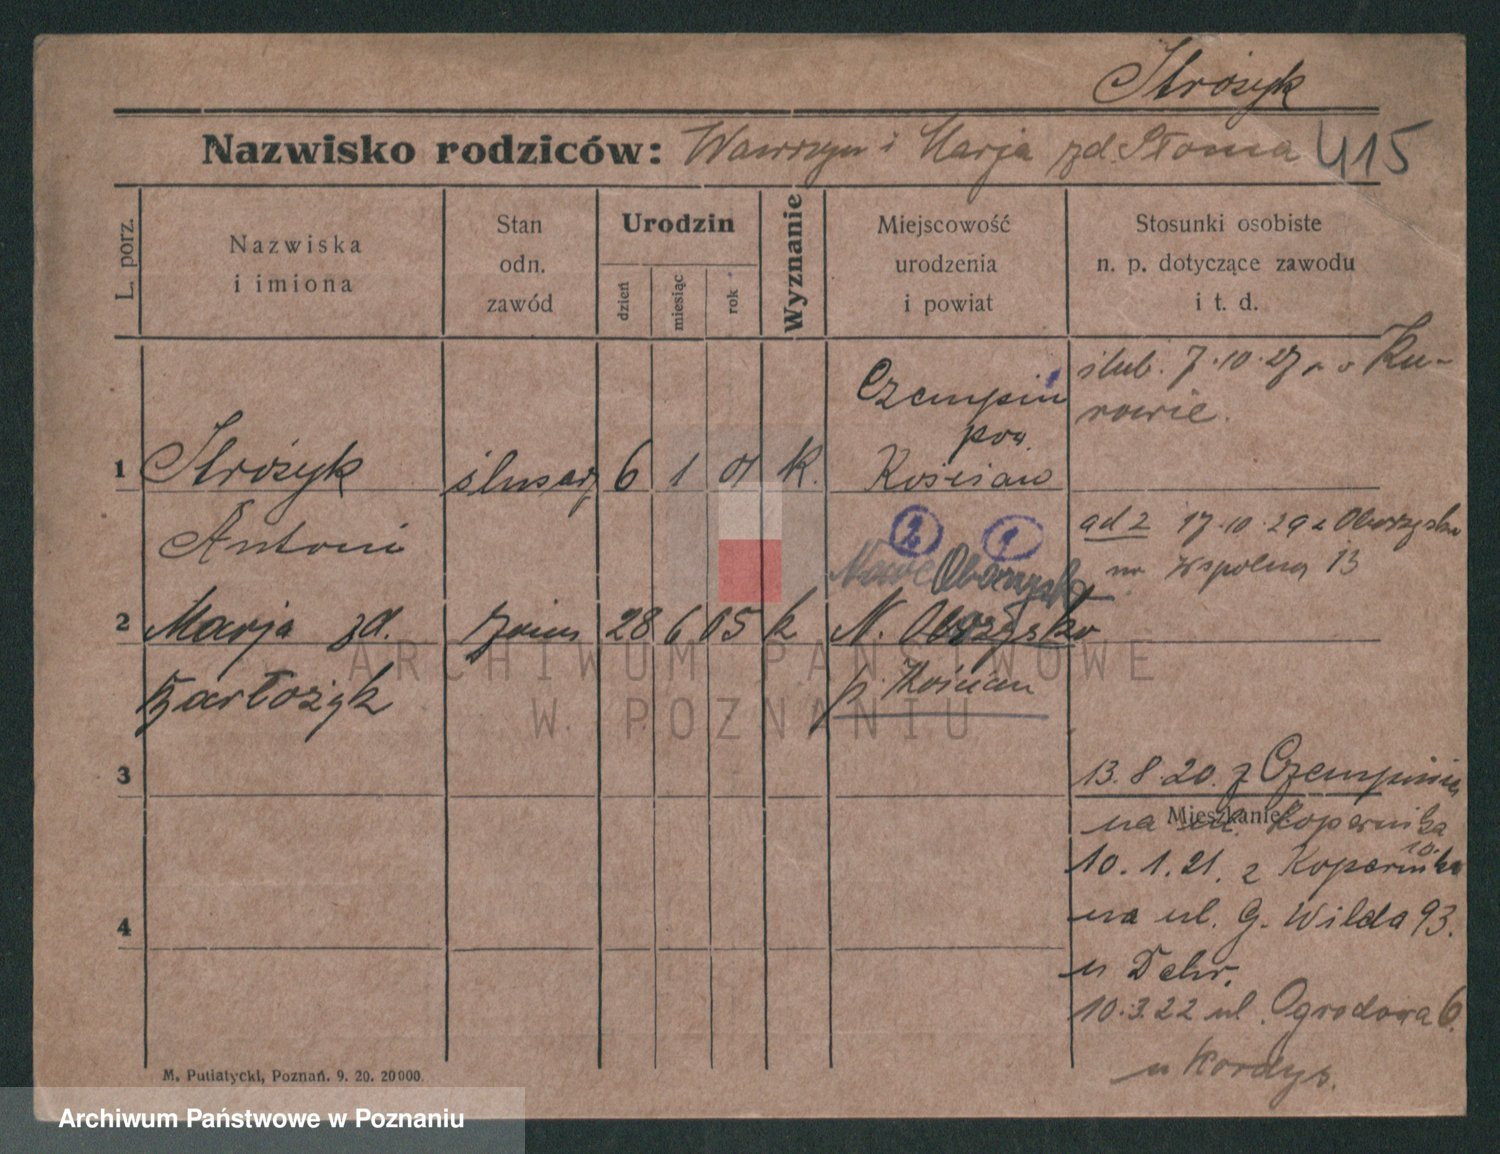 Stróżyk
Nazwisko rodziców: Wawrzyn i Marja zd. Słoma 415
L. porz.
Nazwiska
i imiona
Stan
odn.
zawód
Urodzin
dzień
miesiąc
rok
Wyznanie
Miejscowość
urodzenia
i powiat
Stosunki osobiste
n. p. dotyczące zawodu
i t. d.
ślub. 7.10.27 r. w Ku-
rowie.
Czempiń
pow.
1 Stróżyk ślusarz 6 1 01 k. Kościan
Antoni
ad 2 17.10.29 z Obrzyska
na Wspólną 13
2 1
Nowe Oborzysk
2 Marja zd. żona 28 6 05 k N. Oborzysko
Bartożyk p. Kościan
3
13.8.20. z Czempinia
Mieszkanie:
na ul. Kopernika
10.
10.1.21. z Kopernika
na ul. G. Wilda 93.
4
u Dehr.
10.3.22 ul. Ogrodowa 6.
u Kordys.
M. Putiatycki, Poznań. 9. 20. 20000.
ARCHIWUM PAŃSTWOWE
W POZNANIU
Archiwum Państwowe w Poznaniu